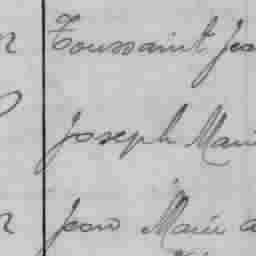 Toussaint Jea
Joseph Mari
Jean Marie a